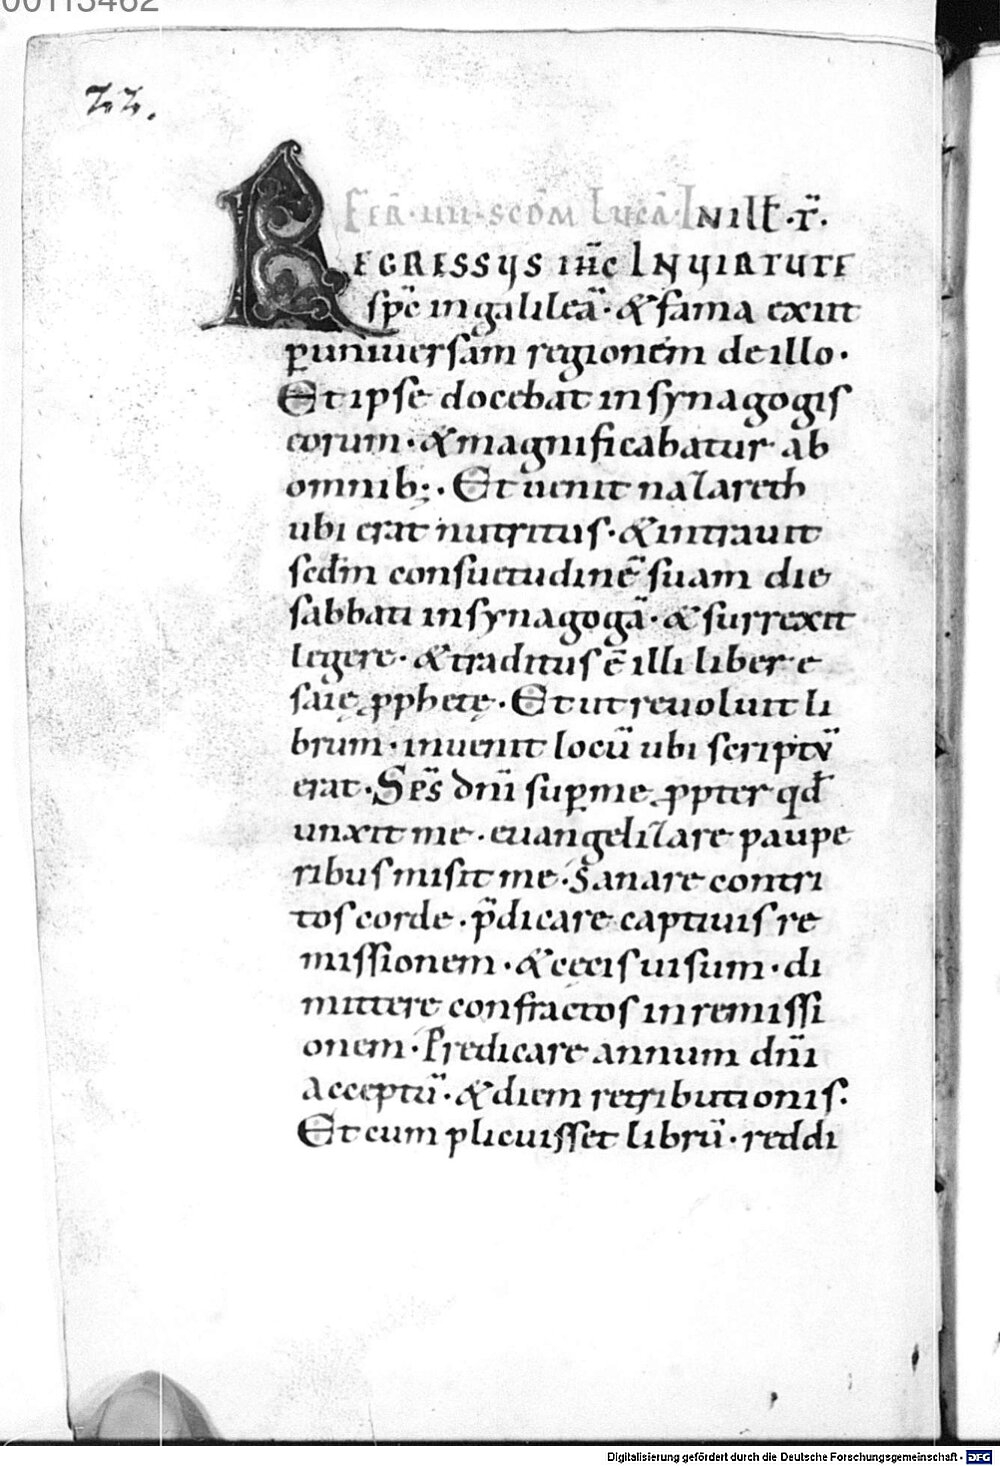 00113462
22.
FER̄·IIII·SCD̄M LUCĀ·IN ILL̄ T̄.
REGRESSUS IH̄C IN UIRTUTE
sp̄c in galileā·& fama exiit
p̱ uniuersam regionem de illo·
Et ipse docebat in synagogis
eorum·& magnificabatur ab
omnib;· Et uenit nazareth
ubi erat nutritus·& intrauit
scdm̄ consuetudinē suam die
sabbati in synagogā·& surrexit
legere·& traditus ē illi liber e
saię ꝓphetę· Et ut reuoluit li
brum·inuenit locū ubi scriptū
erat·Sp̄s dnī sup̱ me ꝓpter qd̄
unxit me·euangelizare paupe
ribus misit me·Sanare contri
tos corde·p̄dicare captiuis re
missionem·& cecis uisum·di
mittere confractos in remissi
onem·Predicare annum dnī
acceptū·& diem retributionis·
Et cum plicuisset librū·reddi
Digitalisierung gefördert durch die Deutsche Forschungsgemeinschaft - DFG